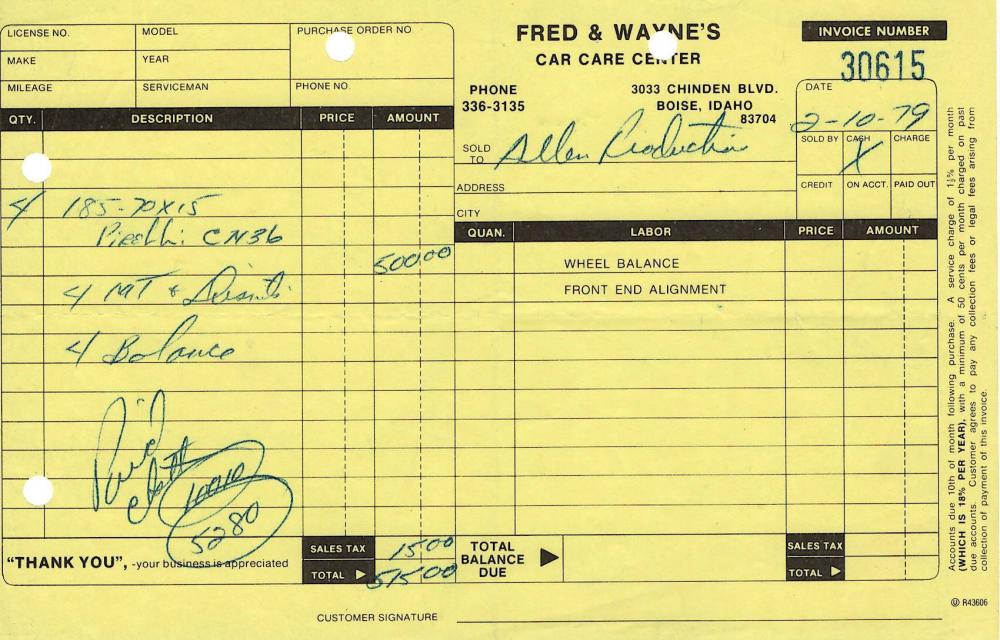 LICENSE NO. MODEL PURCHASE ORDER NO
MAKE YEAR
MILEAGE SERVICEMAN PHONE NO.
FRED & WAYNE'S
CAR CARE CENTER
PHONE
336-3135
3033 CHINDEN BLVD.
BOISE, IDAHO
83704
INVOICE NUMBER
30615
DATE
2-10-79
SOLD TO Allen Production
SOLD BY CASH CHARGE
X
ADDRESS
CREDIT ON ACCT. PAID OUT
CITY
QTY. DESCRIPTION PRICE AMOUNT
4 185-70X15
Pirelli CN36
500 00
4 MT &
4 Balance
Paid
5280
"THANK YOU", -your business is appreciated
SALES TAX 15 00
TOTAL 515 00
QUAN. LABOR PRICE AMOUNT
WHEEL BALANCE
FRONT END ALIGNMENT
TOTAL
BALANCE
DUE
SALES TAX
TOTAL
CUSTOMER SIGNATURE
Accounts due 10th of month following purchase. A service charge of 1½% per month
(WHICH IS 18% PER YEAR), with a minimum of 50 cents per month charged on past
due accounts. Customer agrees to pay any collection fees or legal fees arising from
collection of payment of this invoice.
R43606